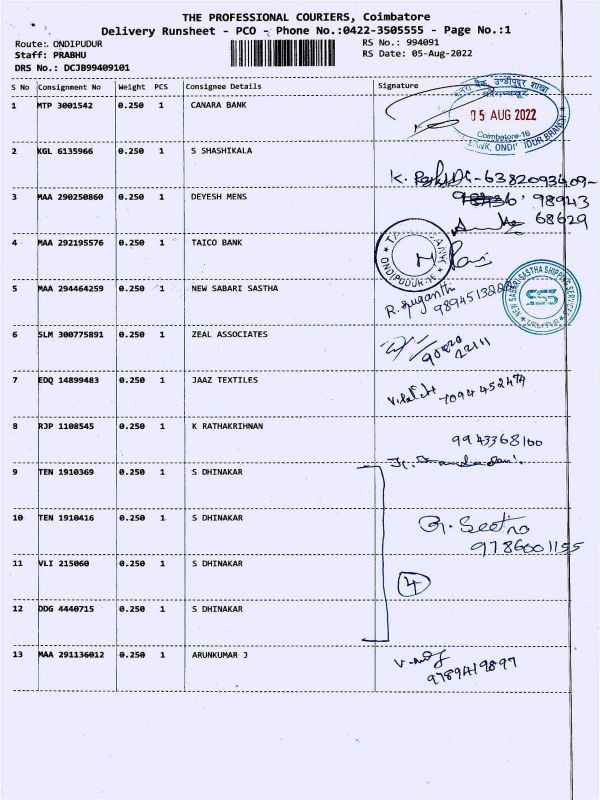 THE PROFESSIONAL COURIERS, Coimbatore
Delivery Runsheet - PCO - Phone No.:0422-3505555 - Page No.:1
Route:. ONDIPUDUR RS No.: 994091
Staff: PRABHU RS Date: 05-Aug-2022
DRS No.: DCJB99409101
S No Consignment No Weight PCS Consignee Details Signature
1 MTP 3001542 0.250 1 CANARA BANK
05 AUG 2022
Coimbatore-16
2 KGL 6135966 0.250 1 S SHASHIKALA
K. 6382093409
3 MAA 290250860 0.250 1 DEYESH MENS
98943
68629
4 MAA 292195576 0.250 1 TAICO BANK
ONDIPUDUR-16
5 MAA 294464259 0.250 1 NEW SABARI SASTHA
R. Suganthi
NEW SABARI SASTHA SHIPPING SERVICES
SSS
6 SLM 300775891 0.250 1 ZEAL ASSOCIATES
90020
22111
7 EDQ 14899483 0.250 1 JAAZ TEXTILES
7094452474
8 RJP 1108545 0.250 1 K RATHAKRIHNAN
9943368100
9 TEN 1910369 0.250 1 S DHINAKAR
10 TEN 1910416 0.250 1 S DHINAKAR
R. Seetha
9786001155
11 VLI 215060 0.250 1 S DHINAKAR
4
12 DDG 4440715 0.250 1 S DHINAKAR
13 MAA 291136012 0.250 1 ARUNKUMAR J
9789419897